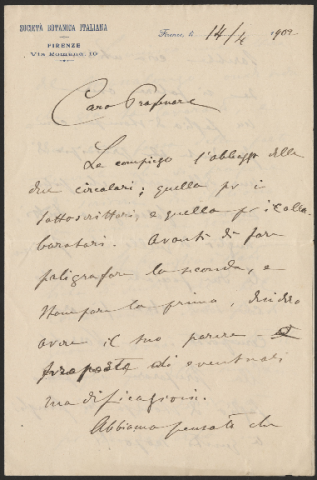 SOCIETÀ BOTANICA ITALIANA
FIRENZE
Via Romana, 19
Firenze, li 14/4 1902
Caro Professore
Le compiego l'abbozzo delle
due circolari; quella per i
sottoscrittori, e quella per i colla-
boratori. Avanti di fare
poligrafare la seconda, e
stampare la prima, desidero
avere il suo parere e
proposta di eventuali
modificazioni.
Abbiamo pensato che